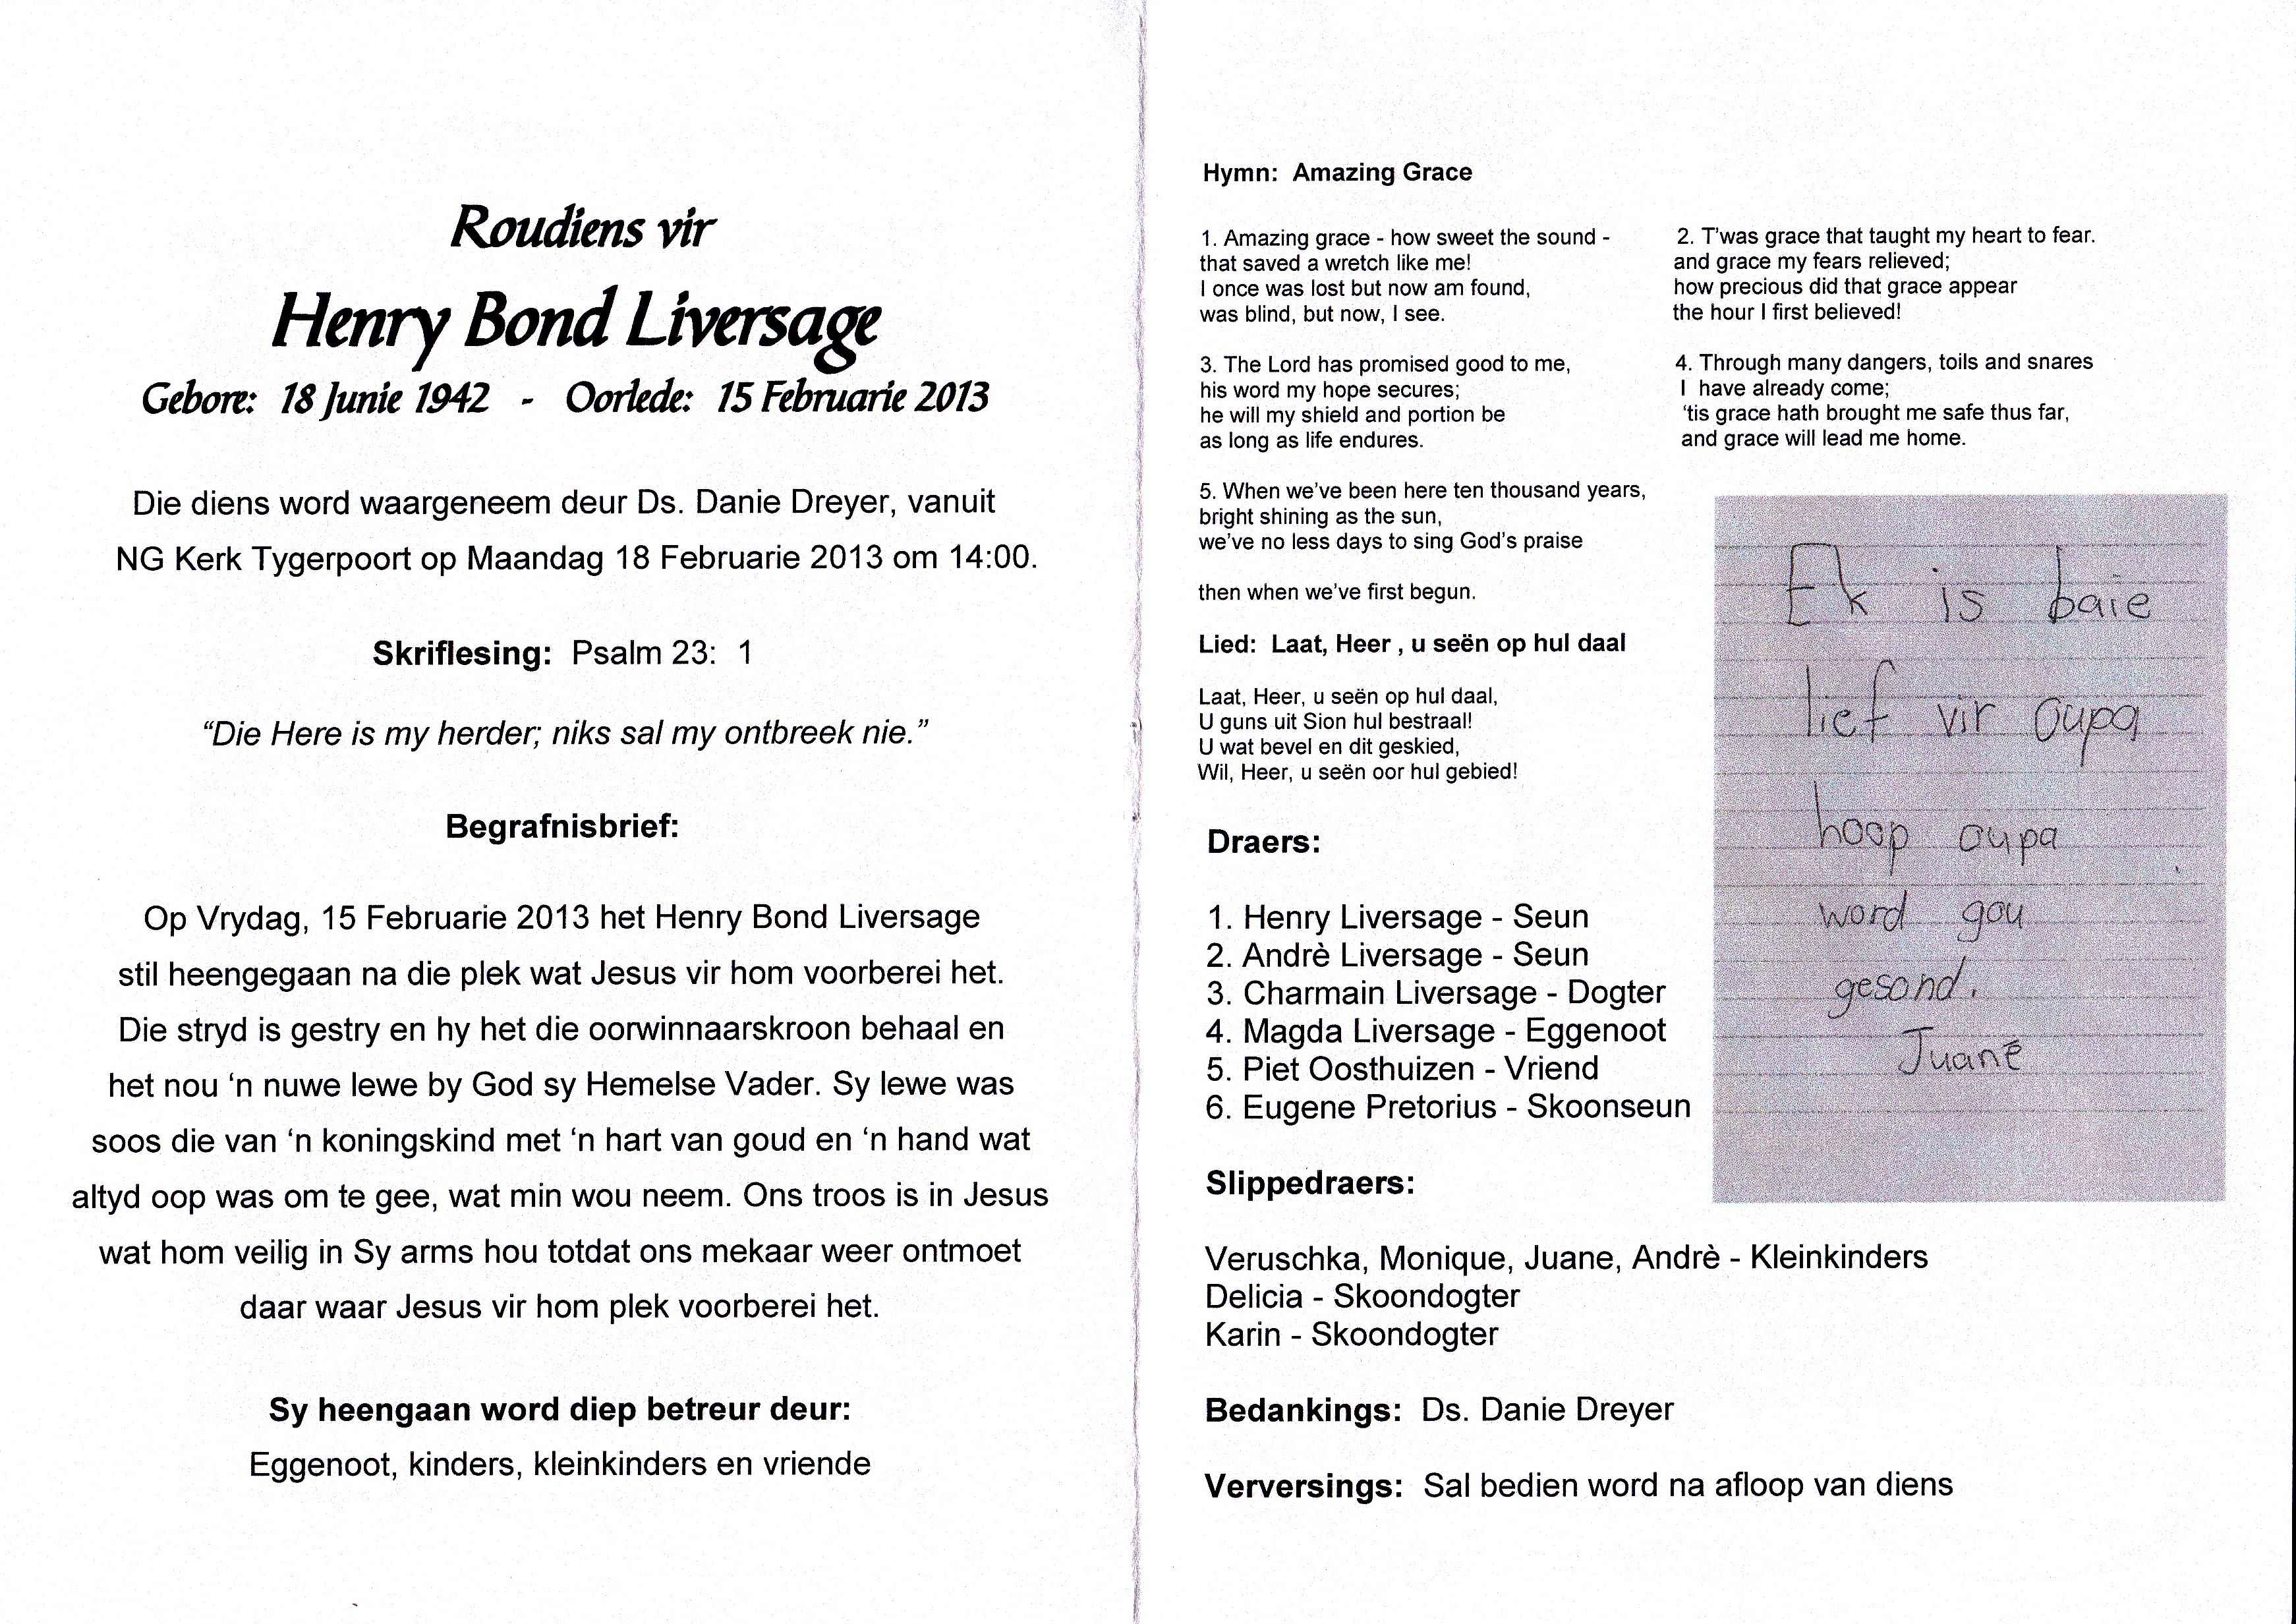 Roudiens vir
Henry Bond Liversage
Gebore: 18 Junie 1942 - Oorlede: 15 Februarie 2013
Die diens word waargeneem deur Ds. Danie Dreyer, vanuit
NG Kerk Tygerpoort op Maandag 18 Februarie 2013 om 14:00.
Skriflesing: Psalm 23: 1
“Die Here is my herder; niks sal my ontbreek nie.”
Begrafnisbrief:
Op Vrydag, 15 Februarie 2013 het Henry Bond Liversage
stil heengegaan na die plek wat Jesus vir hom voorberei het.
Die stryd is gestry en hy het die oorwinnaarskroon behaal en
het nou ‘n nuwe lewe by God sy Hemelse Vader. Sy lewe was
soos die van ‘n koningskind met ‘n hart van goud en ‘n hand wat
altyd oop was om te gee, wat min wou neem. Ons troos is in Jesus
wat hom veilig in Sy arms hou totdat ons mekaar weer ontmoet
daar waar Jesus vir hom plek voorberei het.
Sy heengaan word diep betreur deur:
Eggenoot, kinders, kleinkinders en vriende
Hymn: Amazing Grace
1. Amazing grace - how sweet the sound -
that saved a wretch like me!
I once was lost but now am found,
was blind, but now, I see.
2. T’was grace that taught my heart to fear.
and grace my fears relieved;
how precious did that grace appear
the hour I first believed!
3. The Lord has promised good to me,
his word my hope secures;
he will my shield and portion be
as long as life endures.
4. Through many dangers, toils and snares
I have already come;
‘tis grace hath brought me safe thus far,
and grace will lead me home.
5. When we’ve been here ten thousand years,
bright shining as the sun,
we’ve no less days to sing God’s praise
then when we’ve first begun.
Lied: Laat, Heer , u seën op hul daal
Laat, Heer, u seën op hul daal,
U guns uit Sion hul bestraal!
U wat bevel en dit geskied,
Wil, Heer, u seën oor hul gebied!
Ek is baie
lief vir Oupa
hoop oupa
word gou
gesond.
Juané
Draers:
1. Henry Liversage - Seun
2. Andrè Liversage - Seun
3. Charmain Liversage - Dogter
4. Magda Liversage - Eggenoot
5. Piet Oosthuizen - Vriend
6. Eugene Pretorius - Skoonseun
Slippedraers:
Veruschka, Monique, Juane, Andrè - Kleinkinders
Delicia - Skoondogter
Karin - Skoondogter
Bedankings: Ds. Danie Dreyer
Verversings: Sal bedien word na afloop van diens